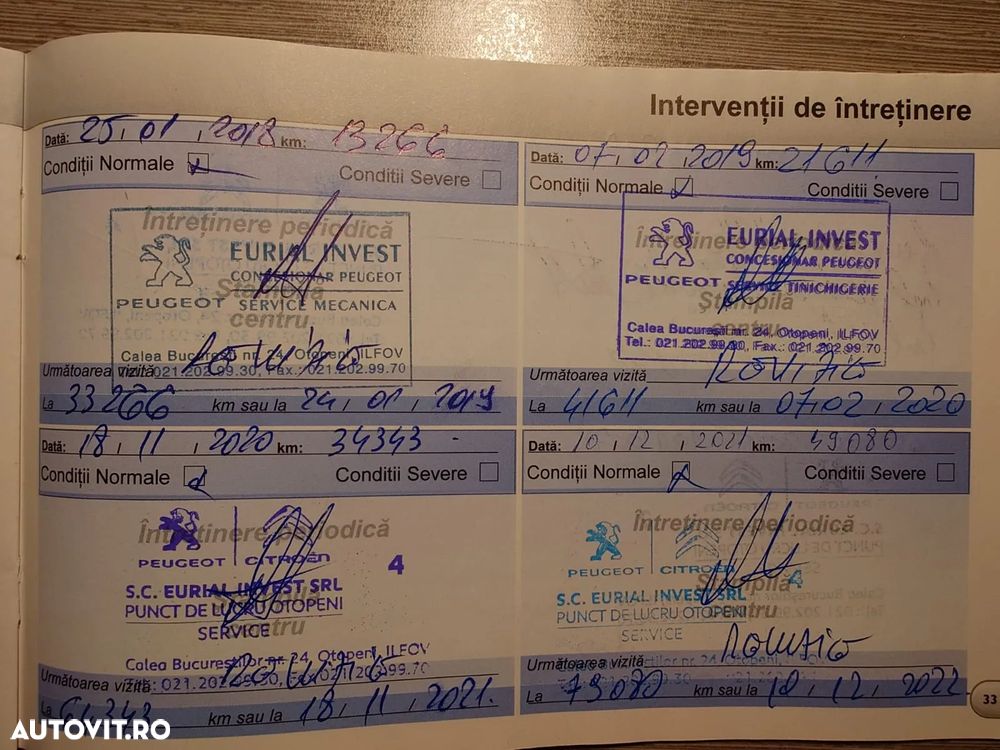 Intervenții de întreținere
Dată: 25, 01, 2018 km: 13266
Condiții Normale Conditii Severe
Întreținere periodică
EURIAL INVEST
CONCESIONAR PEUGEOT
PEUGEOT SERVICE MECANICA
Ștampilă
centru
Calea Bucureşti nr. 24, Otopeni, ILFOV
021.202.99.30, Fax.: 021.202.99.70
Următoarea vizită
La 33266 km sau la 24, 01, 2019
Dată: 07, 02, 2019 km: 21611
Condiții Normale Conditii Severe
Întreținere periodică
EURIAL INVEST
CONCESIONAR PEUGEOT
PEUGEOT SERVICE TINICHIGERIE
Ștampilă
centru
Calea Bucureşti nr. 24, Otopeni, ILFOV
Tel.: 021.202.99.30, Fax.: 021.202.99.70
Următoarea vizită
La 41611 km sau la 07, 02, 2020
Dată: 18, 11, 2020 km: 34343
Condiții Normale Conditii Severe
Întreținere periodică
PEUGEOT CITROËN 4
Ștampilă
S.C. EURIAL INVEST SRL
PUNCT DE LUCRU OTOPENI
centru
SERVICE
Calea Bucureştilor nr. 24, Otopeni, ILFOV
Următoarea vizită
021.202.99.30, Fax: 021.202.99.70
La km sau la 18, 11, 2021.
Dată: 10, 12, 2021 km: 49080
Condiții Normale Conditii Severe
Întreținere periodică
PEUGEOT CITROËN 4
Ștampilă
S.C. EURIAL INVEST SRL
PUNCT DE LUCRU OTOPENI
centru
SERVICE
Următoarea vizită
nr. 24, Otopeni, ILFOV
La km sau la 10, 12, 2022
33
AUTOVIT.RO